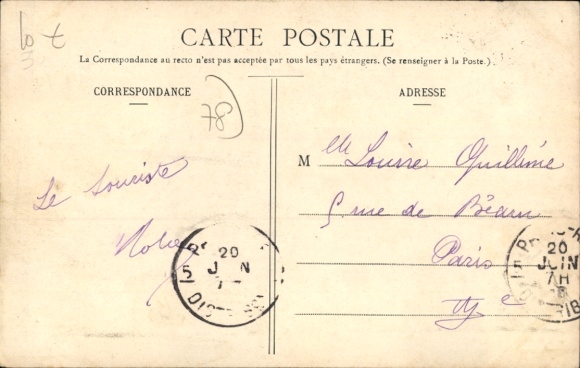 CARTE POSTALE
La Correspondance au recto n'est pas acceptée par tous les pays étrangers. (Se renseigner à la Poste.)
CORRESPONDANCE
ADRESSE
78
Le Touriste
Mlle Louise Quillinie
5 rue de Béarn
Paris
20
JUIN
20
JUIN
7H